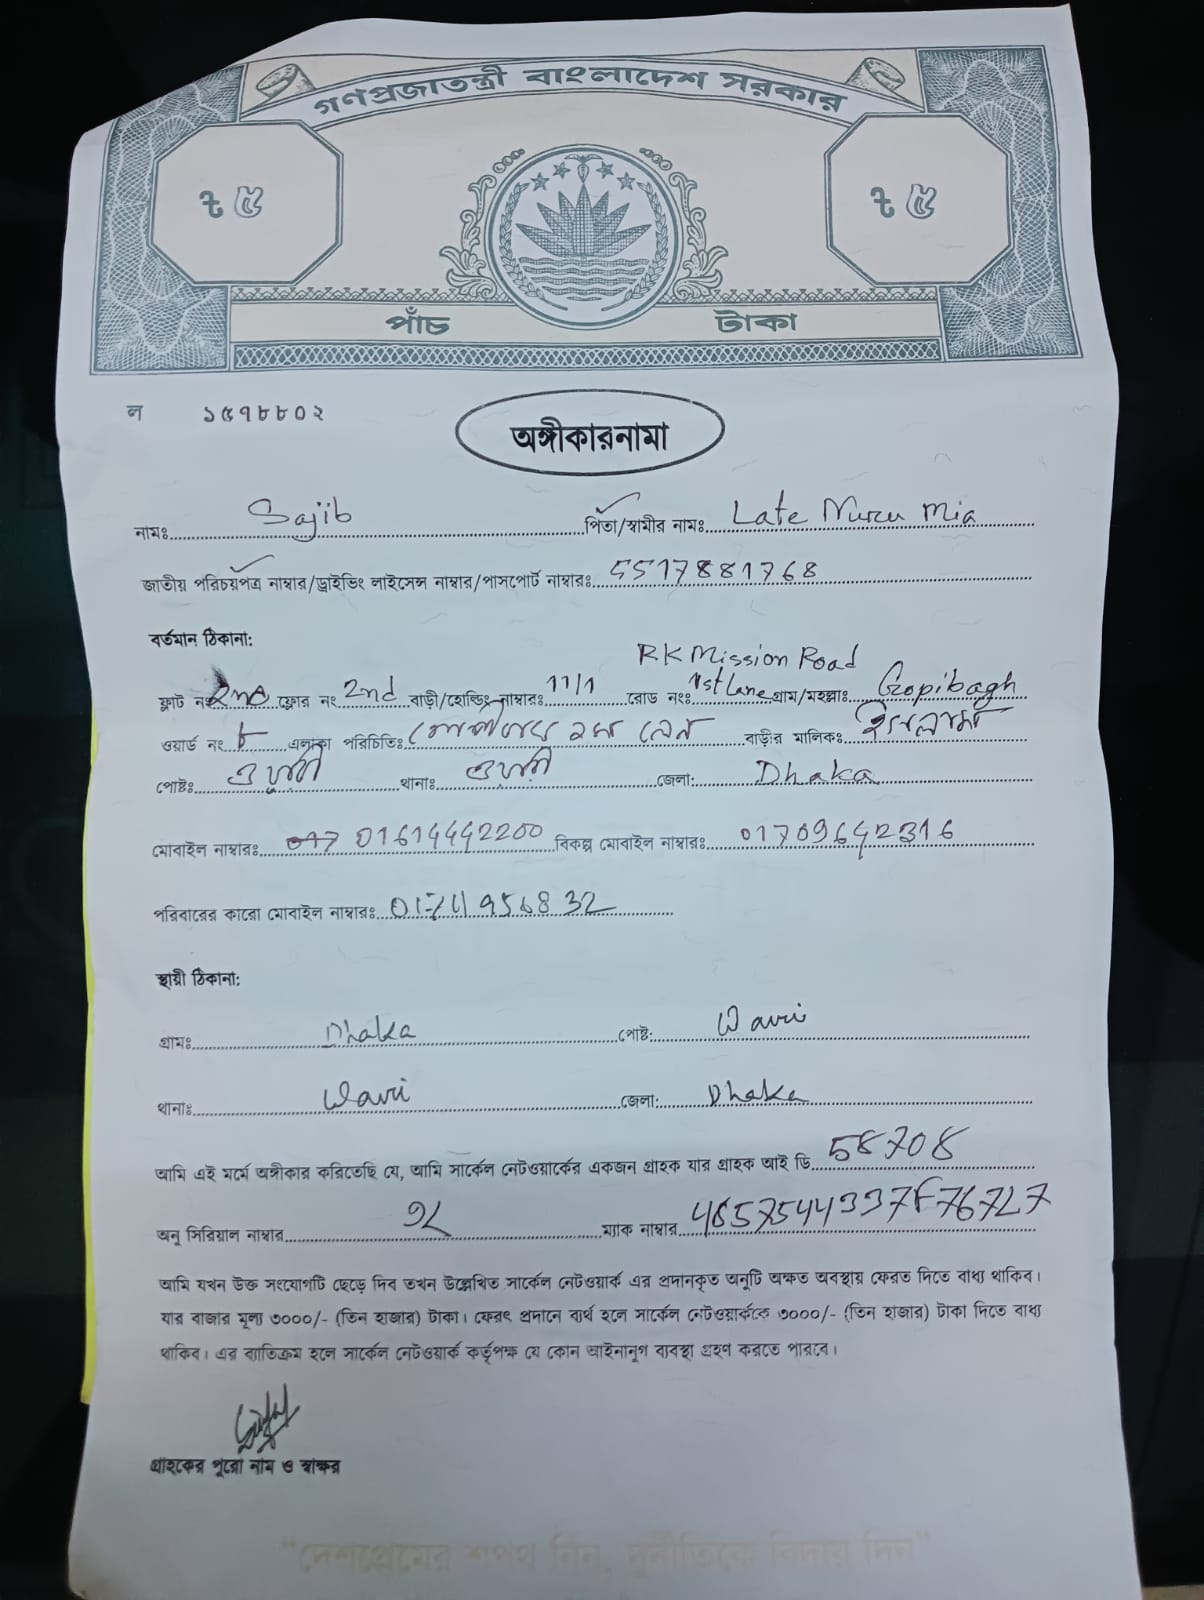 গণপ্রজাতন্ত্রী বাংলাদেশ সরকার
৳ ৫ ৳ ৫
পাঁচ টাকা
ল ১৫৭৮৮০২
অঙ্গীকারনামা
নামঃ Sajib পিতা/স্বামীর নামঃ Late Nuru Mia
জাতীয় পরিচয়পত্র নাম্বার/ড্রাইভিং লাইসেন্স নাম্বার/পাসপোর্ট নাম্বারঃ 5517881768
বর্তমান ঠিকানা:
RK Mission Road
ফ্লাট নং 2nd ফ্লোর নং 2nd বাড়ী/হোল্ডিং নাম্বারঃ 11/1 রোড নংঃ 1st Lane গ্রাম/মহল্লাঃ Gopibagh
ওয়ার্ড নং ৮ এলাকা পরিচিতিঃ গোপীবাগ ১ম লেন বাড়ীর মালিকঃ
পোষ্টঃ ওয়ারী থানাঃ ওয়ারী জেলা: Dhaka
মোবাইল নাম্বারঃ 01614442200 বিকল্প মোবাইল নাম্বারঃ 01709642316
পরিবারের কারো মোবাইল নাম্বারঃ
স্থায়ী ঠিকানা:
গ্রামঃ Dhaka পোষ্ট: Wari
থানাঃ Wari জেলা: Dhaka
আমি এই মর্মে অঙ্গীকার করিতেছি যে, আমি সার্কেল নেটওয়ার্কের একজন গ্রাহক যার গ্রাহক আই ডি 58708
অনু সিরিয়াল নাম্বার ম্যাক নাম্বার
আমি যখন উক্ত সংযোগটি ছেড়ে দিব তখন উল্লেখিত সার্কেল নেটওয়ার্ক এর প্রদানকৃত অনুটি অক্ষত অবস্থায় ফেরত দিতে বাধ্য থাকিব।
যার বাজার মূল্য ৩০০০/- (তিন হাজার) টাকা। ফেরৎ প্রদানে ব্যর্থ হলে সার্কেল নেটওয়ার্ককে ৩০০০/- (তিন হাজার) টাকা দিতে বাধ্য
থাকিব। এর ব্যাতিক্রম হলে সার্কেল নেটওয়ার্ক কর্তৃপক্ষ যে কোন আইনানুগ ব্যবস্থা গ্রহণ করতে পারবে।
গ্রাহকের পুরো নাম ও স্বাক্ষর
"দেশপ্রেমের শপথ নিন, দুর্নীতিকে বিদায় দিন"